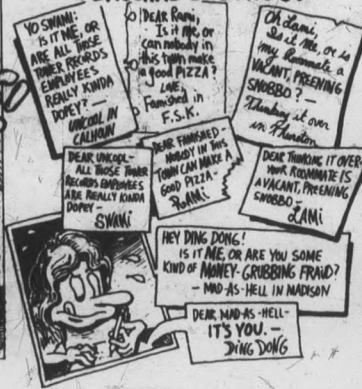 YO SWAMI:
IS IT ME, OR
ARE ALL THOSE
TOWER RECORDS
EMPLOYEES
REALLY KINDA
DOPEY? -
UNCOOL IN
CALHOUN
DEAR Rami,
Is it me, or
can nobody in
this town make
a good PIZZA?
LOVE,
Famished in
F.S.K.
Oh Lami,
Is it Me, or is
my Roommate a
VACANT, PREENING
SNOBBO? -
Thinking it over
in Thurston
DEAR UNCOOL-
ALL THOSE TOWER
RECORDS EMPLOYEES
ARE REALLY KINDA
DOPEY-
SWAMI
DEAR FAMISHED-
NOBODY IN THIS
TOWN CAN MAKE A
GOOD PIZZA-
RAMI
DEAR THINKING IT OVER-
YOUR ROOMMATE IS
A VACANT, PREENING
SNOBBO-
LAMI
HEY DING DONG!
IS IT ME, OR ARE YOU SOME
KIND OF MONEY-GRUBBING FRAUD?
- MAD-AS-HELL IN MADISON
DEAR MAD-AS-HELL-
IT'S YOU. -
DING DONG